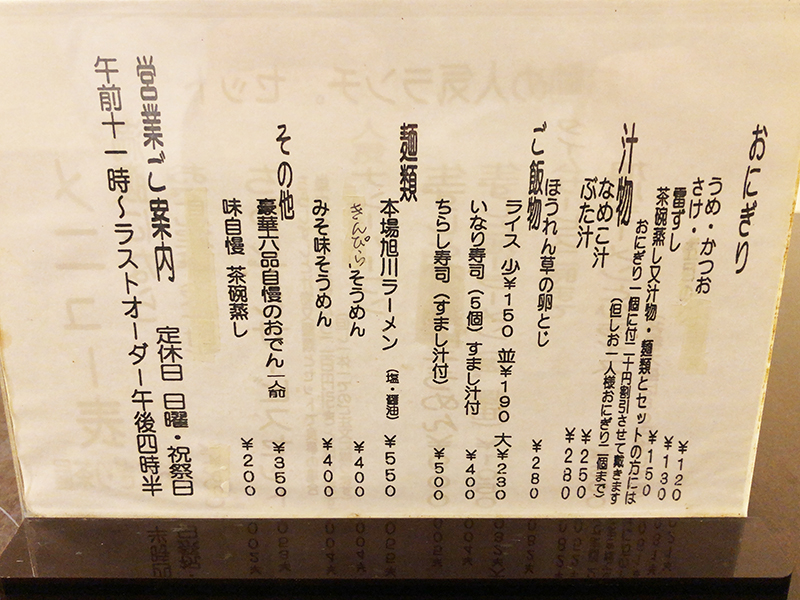 おにぎり
うめ・かつお ¥120
さけ・ ¥130
雷ずし ¥150
茶碗蒸し又汁物・麺類とセットの方には
おにぎり一個に付二十円割引させて戴きます
(但しお一人様おにぎり二個まで)
汁物
なめこ汁 ¥250
ぶた汁 ¥280
ほうれん草の卵とじ ¥280
ご飯物
ライス 少¥150 並¥190 大¥230
いなり寿司(5個)すまし汁付 ¥400
ちらし寿司(すまし汁付) ¥500
麺類
本場旭川ラーメン (塩・醤油) ¥550
きんぴらそうめん ¥400
みそ味そうめん ¥400
その他
豪華六品自慢のおでん一人前 ¥350
味自慢 茶碗蒸し ¥200
営業ご案内 定休日 日曜・祝祭日
午前十一時〜ラストオーダー午後四時半